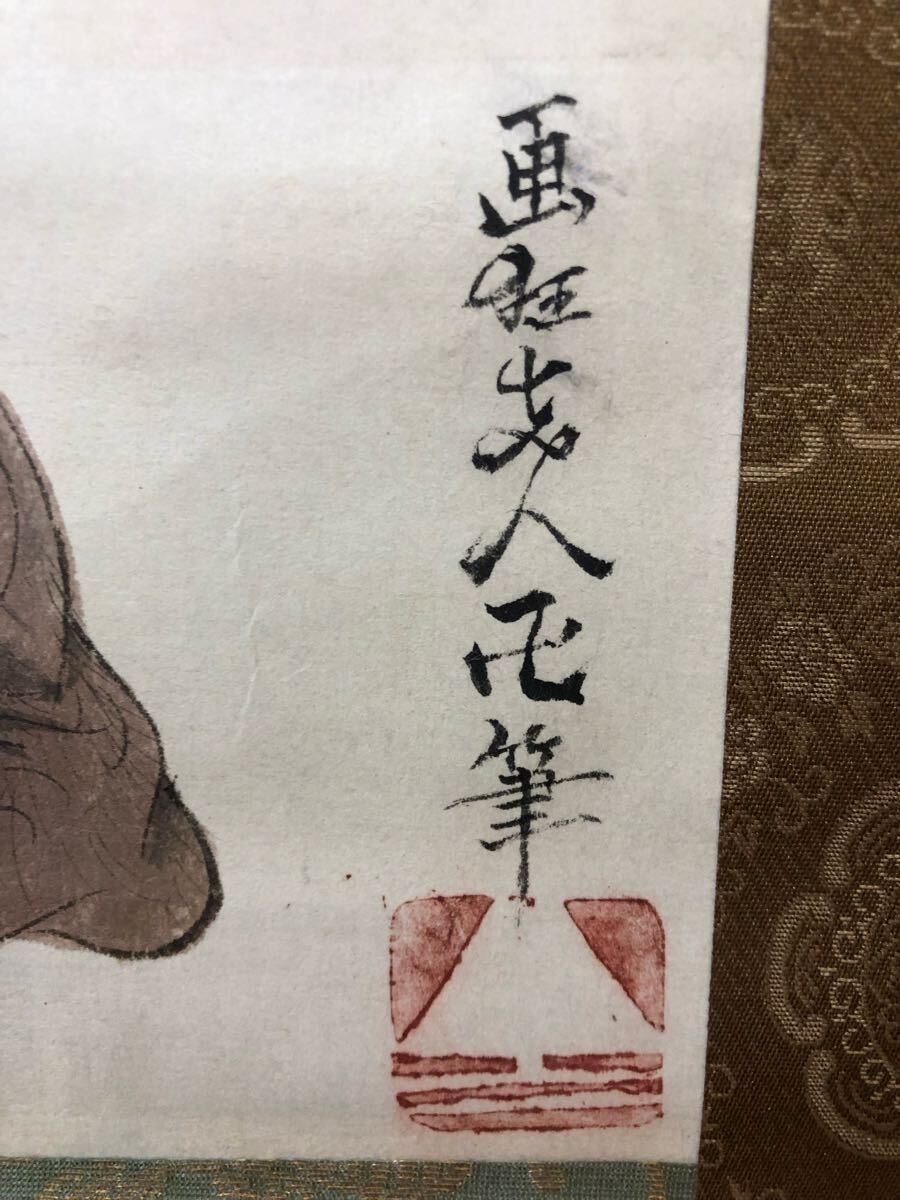 画狂老人卍筆